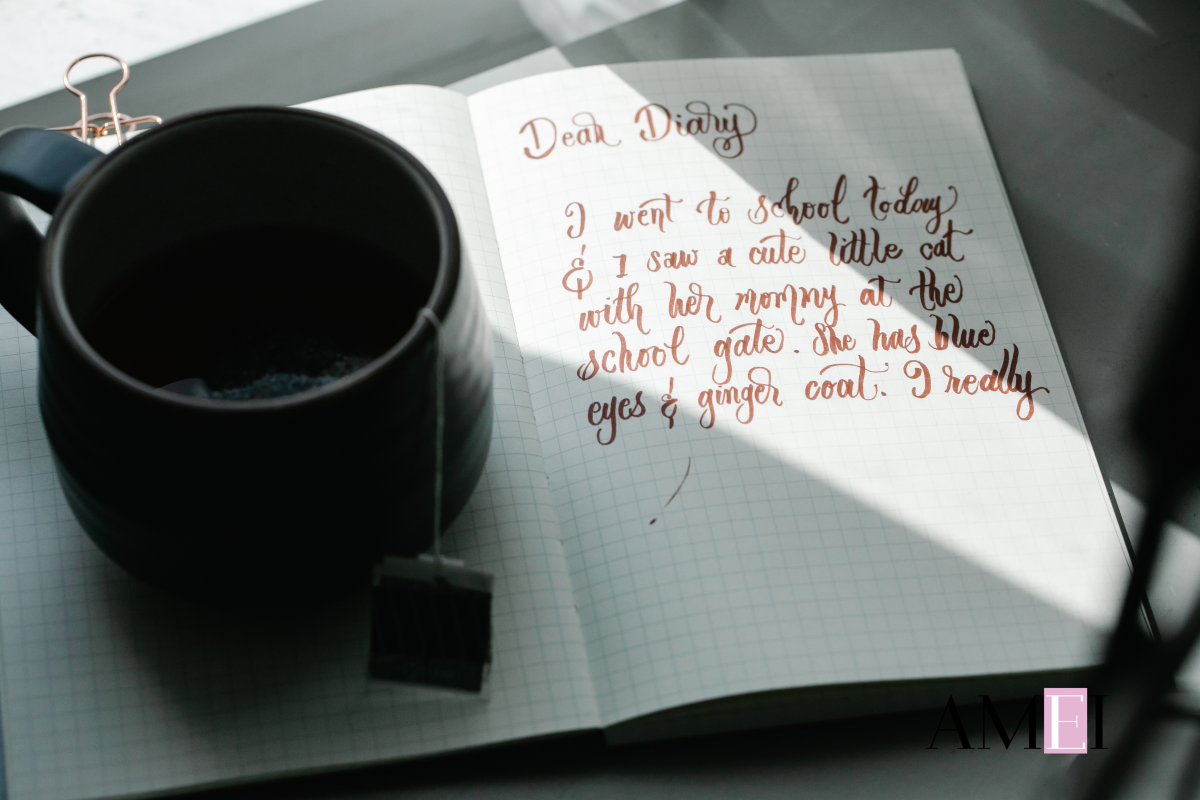 Dear Diary
I went to school today
& I saw a cute little cat
with her mommy at the
school gate. She has blue
eyes & ginger coat. I really
AMEI